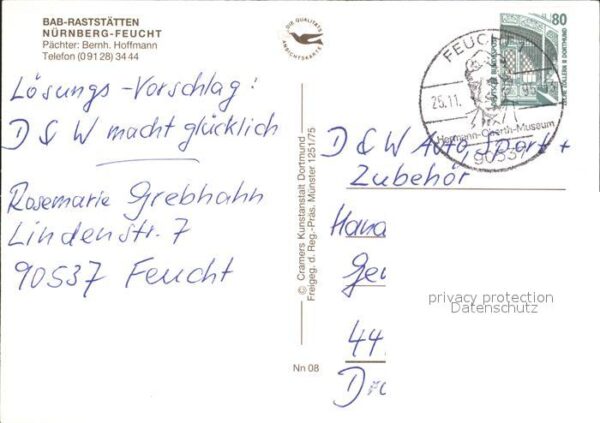 BAB-RASTSTÄTTEN
NÜRNBERG-FEUCHT
Pächter: Bernh. Hoffmann
Telefon (0 91 28) 34 44
Lösungs-Vorschlag:
D & W macht glücklich
Rosemarie Grebhahn
Lindenstr. 7
90537 Feucht
DIE QUALITÄTS
ANSICHTSKARTE
© Cramers Kunstanstalt Dortmund
Freigeg. d. Reg.-Präs. Münster 1251/75
Nn 08
80
DEUTSCHE BUNDESPOST
ZECHE ZOLLERN II DORTMUND
FEUCHT
25.11.
Hermann-Oberth-Museum
90537
D & W Auto Sport +
Zubehör
44
privacy protection
Datenschutz